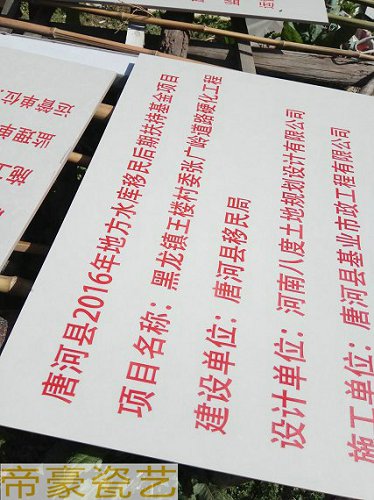 唐河县2016年地方水库移民后期扶持基金项目
项目名称：黑龙镇王楼村委张广岭道路硬化工程
建设单位：唐河县移民局
设计单位：河南八度土地规划设计有限公司
施工单位：唐河县基业市政工程有限公司
运管单位：
监理单
施工
帝豪瓷艺